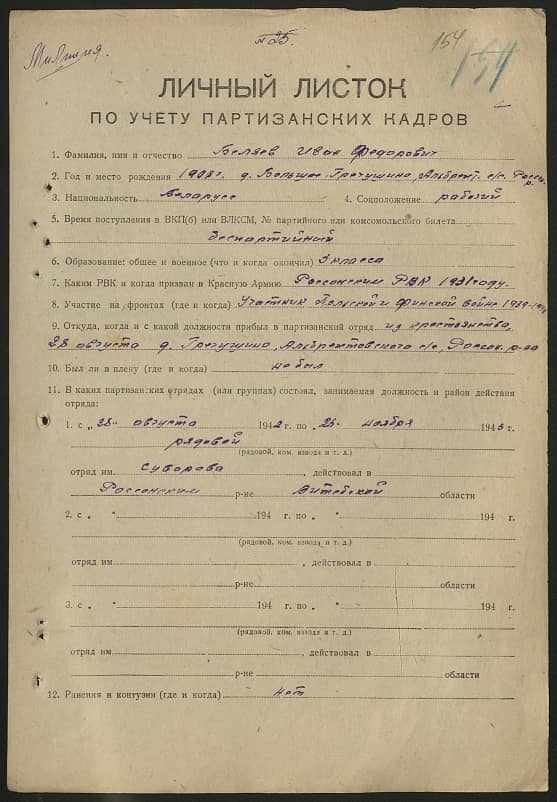 Милиция.
№25.
154
154
ЛИЧНЫЙ ЛИСТОК
ПО УЧЕТУ ПАРТИЗАНСКИХ КАДРОВ
1. Фамилия, имя и отчество Беляев Иван Федорович
2. Год и место рождения 1908 г. д. Большое Гречушино, Альбрехт. с/с. Россон. р.
3. Национальность Беларусс 4. Соцположение рабочий
5. Время поступления в ВКП(б) или ВЛКСМ, № партийного или комсомольского билета
беспартийный
6. Образование: общее и военное (что и когда окончил) 3 класса
7. Каким РВК и когда призван в Красную Армию Россонским РВК 1931 году.
8. Участие на фронтах (где и когда) Участник Польской и Финской войне 1939-
9. Откуда, когда и с какой должности прибыл в партизанский отряд из крестоянства,
28 августа д. Гречушино, Альбрехтовского с/с, Россон. р-на
10. Был ли в плену (где и когда) не был
11. В каких партизанских отрядах (или группах) состоял, занимаемая должность и район действия
отряда:
1. с „28" августа 1942 г. по „25" ноября 1943 г.
рядовой
(рядовой, ком. взвода и т. д.)
отряд им. Суворова, действовал в
Россонским р-не Витебской области
2. с „ " 194 г. по „ " 194 г.
(рядовой, ком. взвода и т. д.)
отряд им. , действовал в
р-не области
3. с „ " 194 г. по „ " 194 г.
(рядовой, ком. взвода и т. д.)
отряд им. , действовал в
р-не области
12. Ранения и контузии (где и когда) нет